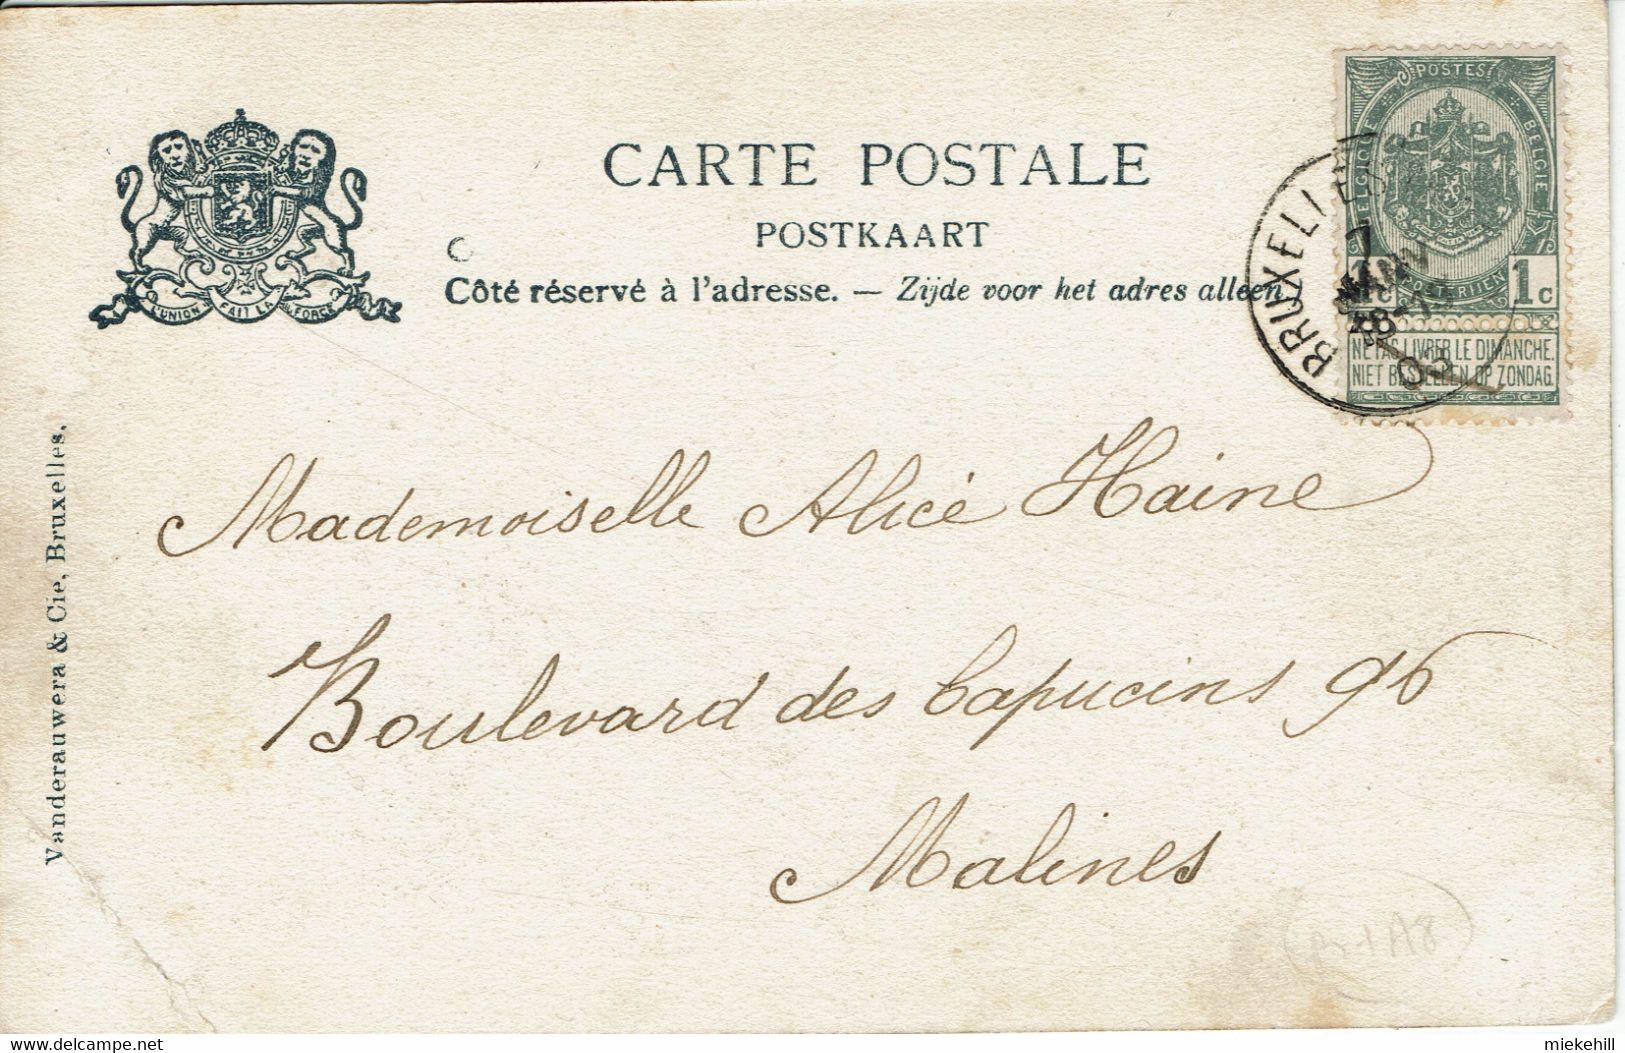 CARTE POSTALE
POSTKAART
Côté réservé à l'adresse. — Zijde voor het adres alleen
L'UNION FAIT LA FORCE
POSTES
BELGIQUE BELGIE
POSTERIJEN
1c 1c
NE PAS LIVRER LE DIMANCHE.
NIET BESTELLEN OP ZONDAG
BRUXELLES
7
JANV
03
Mademoiselle Alice Haine
Boulevard des Capucins 96
Malines
Vanderauwera & Cie, Bruxelles.
delcampe.net
miekehill